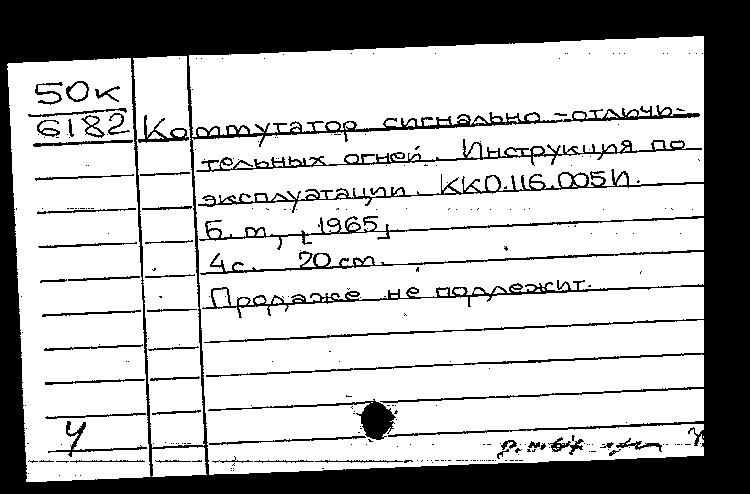 50к
6182
Коммутатор сигнально-отличи-
тельных огней. Инструкция по
эксплуатации. КК0.116.005И.
Б. м., [1965]
4с. 20 cm.
Продаже не подлежит.
у